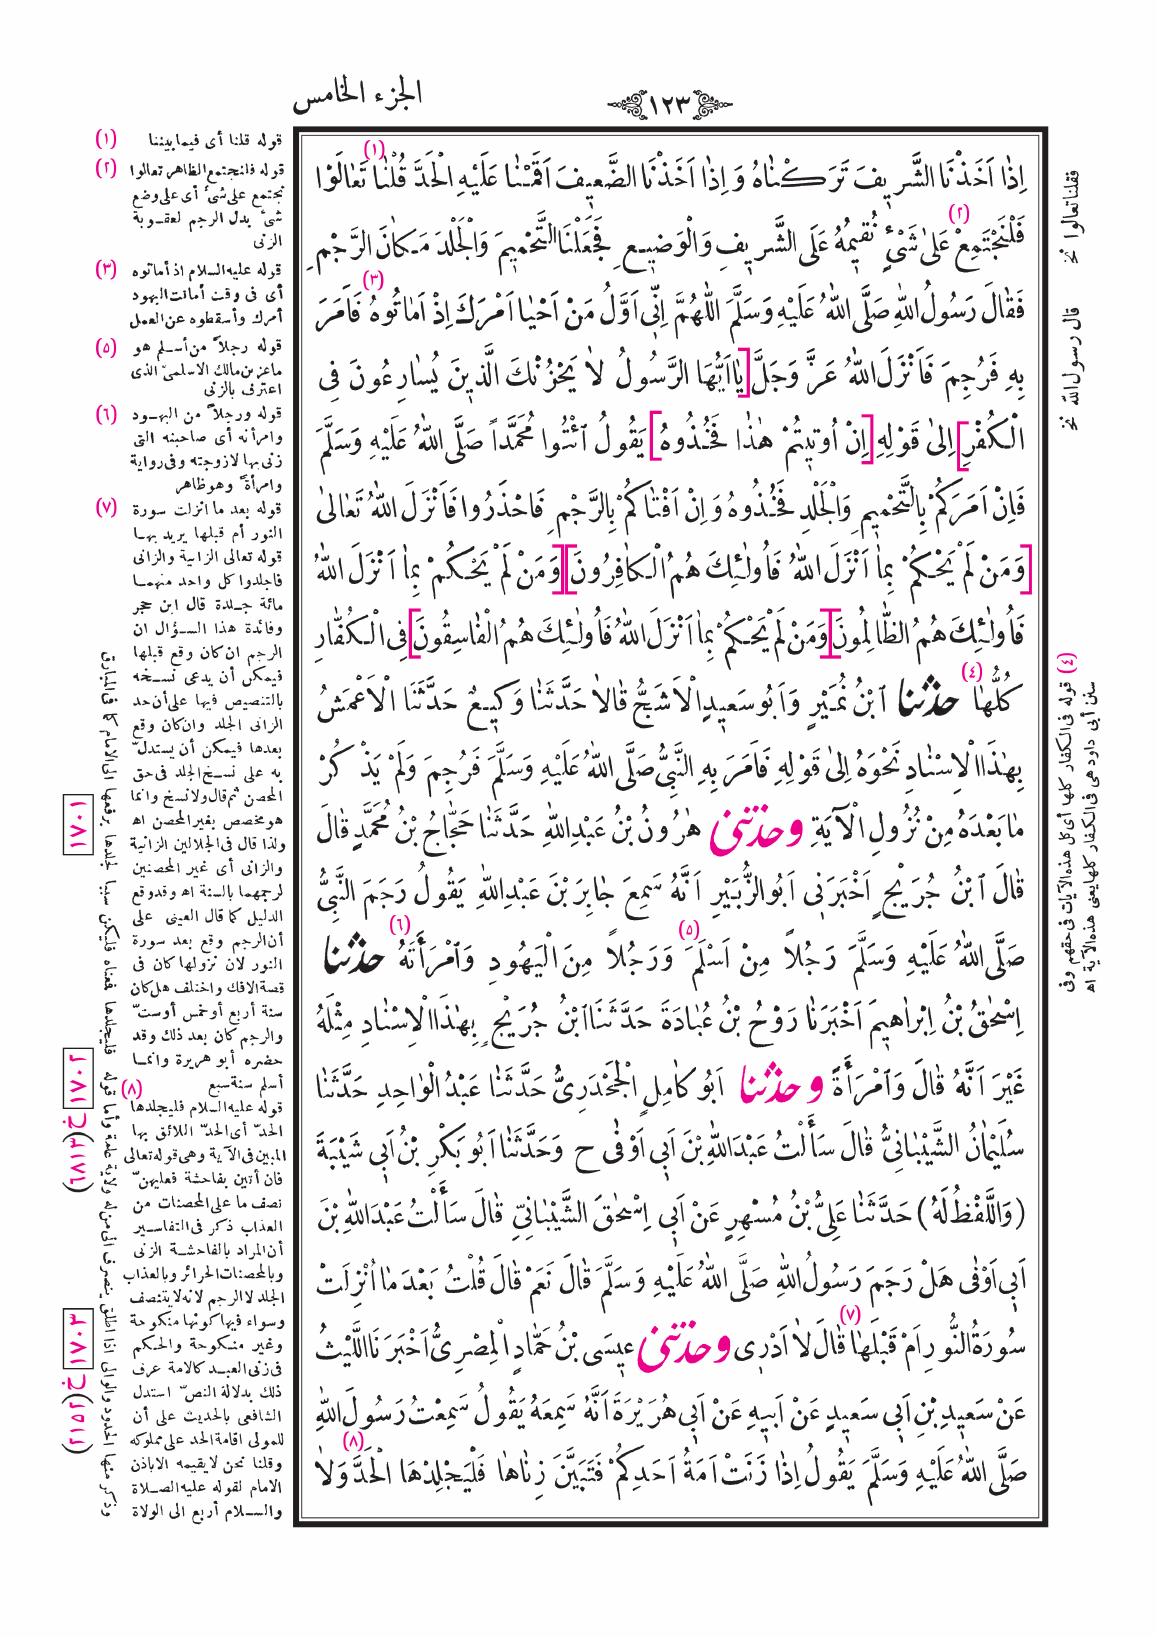 الجزء الخامس
١٢٣
اِذٰا اَخَذْنَا الشَّرِيفَ تَرَكْنٰاهُ وَ اِذٰا اَخَذْنَا الضَّعِيفَ اَقَمْنٰا عَلَيْهِ الْحَدَّ قُلْنٰا (١) تَعٰالَوْا
فَلْنَجْتَمِعْ (٢) عَلىٰ شَىْءٍ نُقِيمُهُ عَلَى الشَّرِيفِ وَالْوَضِيعِ فَجَعَلْنَا التَّحْمِيمَ وَالْجَلْدَ مَكٰانَ الرَّجْمِ
فَقٰالَ رَسُولُ اللّٰهِ صَلَّى اللّٰهُ عَلَيْهِ وَسَلَّمَ اللّٰهُمَّ اِنِّى اَوَّلُ مَنْ اَحْيٰا اَمْرَكَ اِذْ اَمٰاتُوهُ (٣) فَاَمَرَ
بِهِ فَرُجِمَ فَاَنْزَلَ اللّٰهُ عَزَّ وَجَلَّ [يٰا اَيُّهَا الرَّسُولُ لاٰ يَحْزُنْكَ الَّذِينَ يُسٰارِعُونَ فِى
الْكُفْرِ] اِلىٰ قَوْلِهِ [اِنْ اُوتِيتُمْ هٰذٰا فَخُذُوهُ] يَقُولُ ائْتُوا مُحَمَّداً صَلَّى اللّٰهُ عَلَيْهِ وَسَلَّمَ
فَاِنْ اَمَرَكُمْ بِالتَّحْمِيمِ وَالْجَلْدِ فَخُذُوهُ وَ اِنْ اَفْتٰاكُمْ بِالرَّجْمِ فَاحْذَرُوا فَاَنْزَلَ اللّٰهُ تَعٰالىٰ
[وَمَنْ لَمْ يَحْكُمْ بِمٰا اَنْزَلَ اللّٰهُ فَاُولٰئِكَ هُمُ الْكٰافِرُونَ] [وَمَنْ لَمْ يَحْكُمْ بِمٰا اَنْزَلَ اللّٰهُ
فَاُولٰئِكَ هُمُ الظّٰالِمُونَ] [وَمَنْ لَمْ يَحْكُمْ بِمٰا اَنْزَلَ اللّٰهُ فَاُولٰئِكَ هُمُ الْفٰاسِقُونَ] فِى الْكُفّٰارِ
كُلُّهٰا (٤) حدثنا ابْنُ نُمَيْرٍ وَاَبُو سَعِيدٍ الْاَشَجُّ قٰالاٰ حَدَّثَنٰا وَكِيعٌ حَدَّثَنَا الْاَعْمَشُ
بِهٰذَا الْاِسْنٰادِ نَحْوَهُ اِلىٰ قَوْلِهِ فَاَمَرَ بِهِ النَّبِىُّ صَلَّى اللّٰهُ عَلَيْهِ وَسَلَّمَ فَرُجِمَ وَلَمْ يَذْكُرْ
مٰا بَعْدَهُ مِنْ نُزُولِ الْآيَةِ وحدثنى هٰرُونُ بْنُ عَبْدِ اللّٰهِ حَدَّثَنٰا حَجّٰاجُ بْنُ مُحَمَّدٍ قٰالَ
قٰالَ ابْنُ جُرَيْجٍ اَخْبَرَنِى اَبُو الزُّبَيْرِ اَنَّهُ سَمِعَ جٰابِرَ بْنَ عَبْدِ اللّٰهِ يَقُولُ رَجَمَ النَّبِىُّ
صَلَّى اللّٰهُ عَلَيْهِ وَسَلَّمَ رَجُلاً مِنْ اَسْلَمَ (٥) وَرَجُلاً مِنَ الْيَهُودِ وَامْرَأَتَهُ (٦) حدثنا
اِسْحٰقُ بْنُ اِبْرٰاهِيمَ اَخْبَرَنٰا رَوْحُ بْنُ عُبٰادَةَ حَدَّثَنَا ابْنُ جُرَيْجٍ بِهٰذَا الْاِسْنٰادِ مِثْلَهُ
غَيْرَ اَنَّهُ قٰالَ وَامْرَأَةً وحدثنا اَبُو كٰامِلٍ الْجَحْدَرِىُّ حَدَّثَنٰا عَبْدُ الْوٰاحِدِ حَدَّثَنٰا
سُلَيْمٰانُ الشَّيْبٰانِىُّ قٰالَ سَأَلْتُ عَبْدَ اللّٰهِ بْنَ اَبِى اَوْفىٰ ح وَحَدَّثَنٰا اَبُو بَكْرِ بْنُ اَبِى شَيْبَةَ
(وَاللَّفْظُ لَهُ) حَدَّثَنٰا عَلِىُّ بْنُ مُسْهِرٍ عَنْ اَبِى اِسْحٰقَ الشَّيْبٰانِىِّ قٰالَ سَأَلْتُ عَبْدَ اللّٰهِ بْنَ
اَبِى اَوْفىٰ هَلْ رَجَمَ رَسُولُ اللّٰهِ صَلَّى اللّٰهُ عَلَيْهِ وَسَلَّمَ قٰالَ نَعَمْ قٰالَ قُلْتُ بَعْدَ مٰا اُنْزِلَتْ
سُورَةُ النُّورِ اَمْ قَبْلَهٰا (٧) قٰالَ لاٰ اَدْرِى وحدثنى عِيسَى بْنُ حَمّٰادٍ الْمِصْرِىُّ اَخْبَرَنَا اللَّيْثُ
عَنْ سَعِيدِ بْنِ اَبِى سَعِيدٍ عَنْ اَبِيهِ عَنْ اَبِى هُرَيْرَةَ اَنَّهُ سَمِعَهُ يَقُولُ سَمِعْتُ رَسُولَ اللّٰهِ
صَلَّى اللّٰهُ عَلَيْهِ وَسَلَّمَ يَقُولُ اِذٰا زَنَتْ اَمَةُ اَحَدِكُمْ فَتَبَيَّنَ زِنٰاهٰا فَلْيَجْلِدْهَا الْحَدَّ (٨) وَلاٰ
فقلنا تعالوا نخ
قال رسول الله نخ
(٤) قوله فى الكفار كلها أى كل هذه الآيات فى حقهم وفى
سنن أبى داود هى فى الكفار كلها يعنى هذه الآية اه
(١) قوله قلنا أى فيما بيننا
(٢) قوله فلنجتمع الظاهر تعالوا
نجتمع على شئ أى على وضع
شئ بدل الرجم لعقوبة
الزنى
(٣) قوله عليه السلام اذ أماتوه
أى فى وقت أماتت اليهود
أمرك وأسقطوه عن العمل
(٥) قوله رجلاً من أسلم هو
ماعز بن مالك الاسلمىّ الذى
اعترف بالزنى
(٦) قوله ورجلاً من اليهود
وامرأته أى صاحبته التى
زنى بها لا زوجته وفى رواية
وامرأةً وهو ظاهر
(٧) قوله بعد ما انزلت سورة
النور أم قبلها يريد بها
قوله تعالى الزانية والزانى
فاجلدوا كل واحد منهما
مائة جلدة قال ابن حجر
وفائدة هذا السؤال ان
الرجم ان كان وقع قبلها
فيمكن أن يدعى نسخه
بالتنصيص فيها على أن حد
الزانى الجلد وان كان وقع
بعدها فيمكن أن يستدلّ
به على نسخ الجلد فى حق
المحصن ثم قال ولا نسخ وانما
هو مخصص بغير المحصن اه
ولذا قال فى الجلالين الزانية
والزانى أى غير المحصنين
لرجمهما بالسنة اه وقد وقع
الدليل كما قال العينى على
أن الرجم وقع بعد سورة
النور لان نزولها كان فى
قصة الافك واختلف هل كان
سنة أربع أو خمس أو ستّ
والرجم كان بعد ذلك وقد
حضره أبو هريرة وانما
أسلم سنة سبع
(٨) قوله عليه السلام فليجلدها
الحدّ أى الحدّ اللائق بها
المبين فى الآية وهى قوله تعالى
فان أتين بفاحشة فعليهنّ
نصف ما على المحصنات من
العذاب ذكر فى التفاسير
أن المراد بالفاحشة الزنى
وبالمحصنات الحرائر وبالعذاب
الجلد لا الرجم لانه لا يتنصف
وسواء فيها كونها منكوحة
وغير منكوحة والحكم
فى زنى العبد كالامة عرف
ذلك بدلالة النصّ استدل
الشافعى بالحديث على أن
للمولى اقامة الحد على مملوكه
وقلنا نحن لا يقيمه الا باذن
الامام لقوله عليه الصلاة
والسلام أربع الى الولاة
وذكر منها الحدود والوالى اذا اطلق ينصرف الى من له ولاية عامة وأما قوله فليجلدها فمعناه فليكن سببا لجلدها برفعها الى الامام كما فى المبارق
١٧٠١
١٧٠٢
خ (٦٨١٣)
١٧٠٣
خ (٢١٥٢)